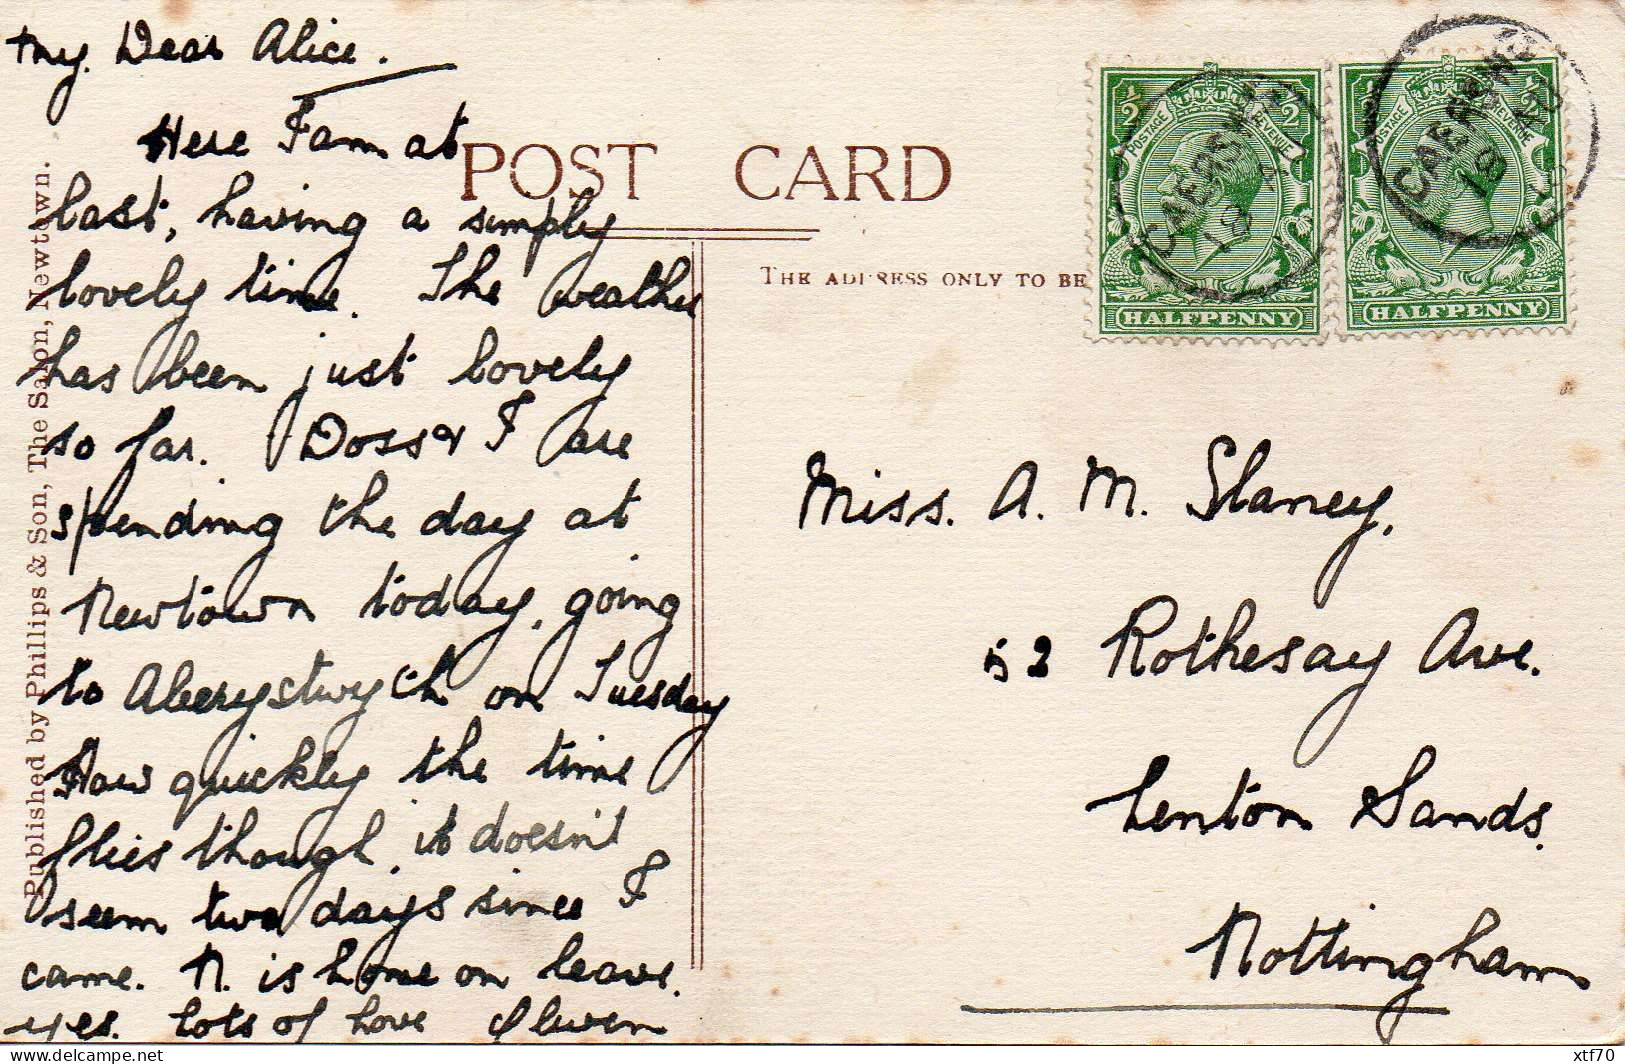 My Dear Alice.
Here I am at
last, having a simply
lovely time. The weather
has been just lovely
so far. Doss & I are
spending the day at
Newtown today, going
to Aberystwyth on Tuesday
How quickly the time
flies though, it doesn't
seem two days since I
came. N. is home on leave.
yes. Lots of Love Olwen
Published by Phillips & Son, The Salon, Newtown.
POST CARD
THE ADDRESS ONLY TO BE
½ ½
POSTAGE REVENUE
HALFPENNY
½ ½
POSTAGE REVENUE
HALFPENNY
CAERSWS
CAERSWS
Miss. A. M. Slaney,
52 Rothesay Ave.
Lenton Sands.
Nottingham
delcampe.net
xtf70